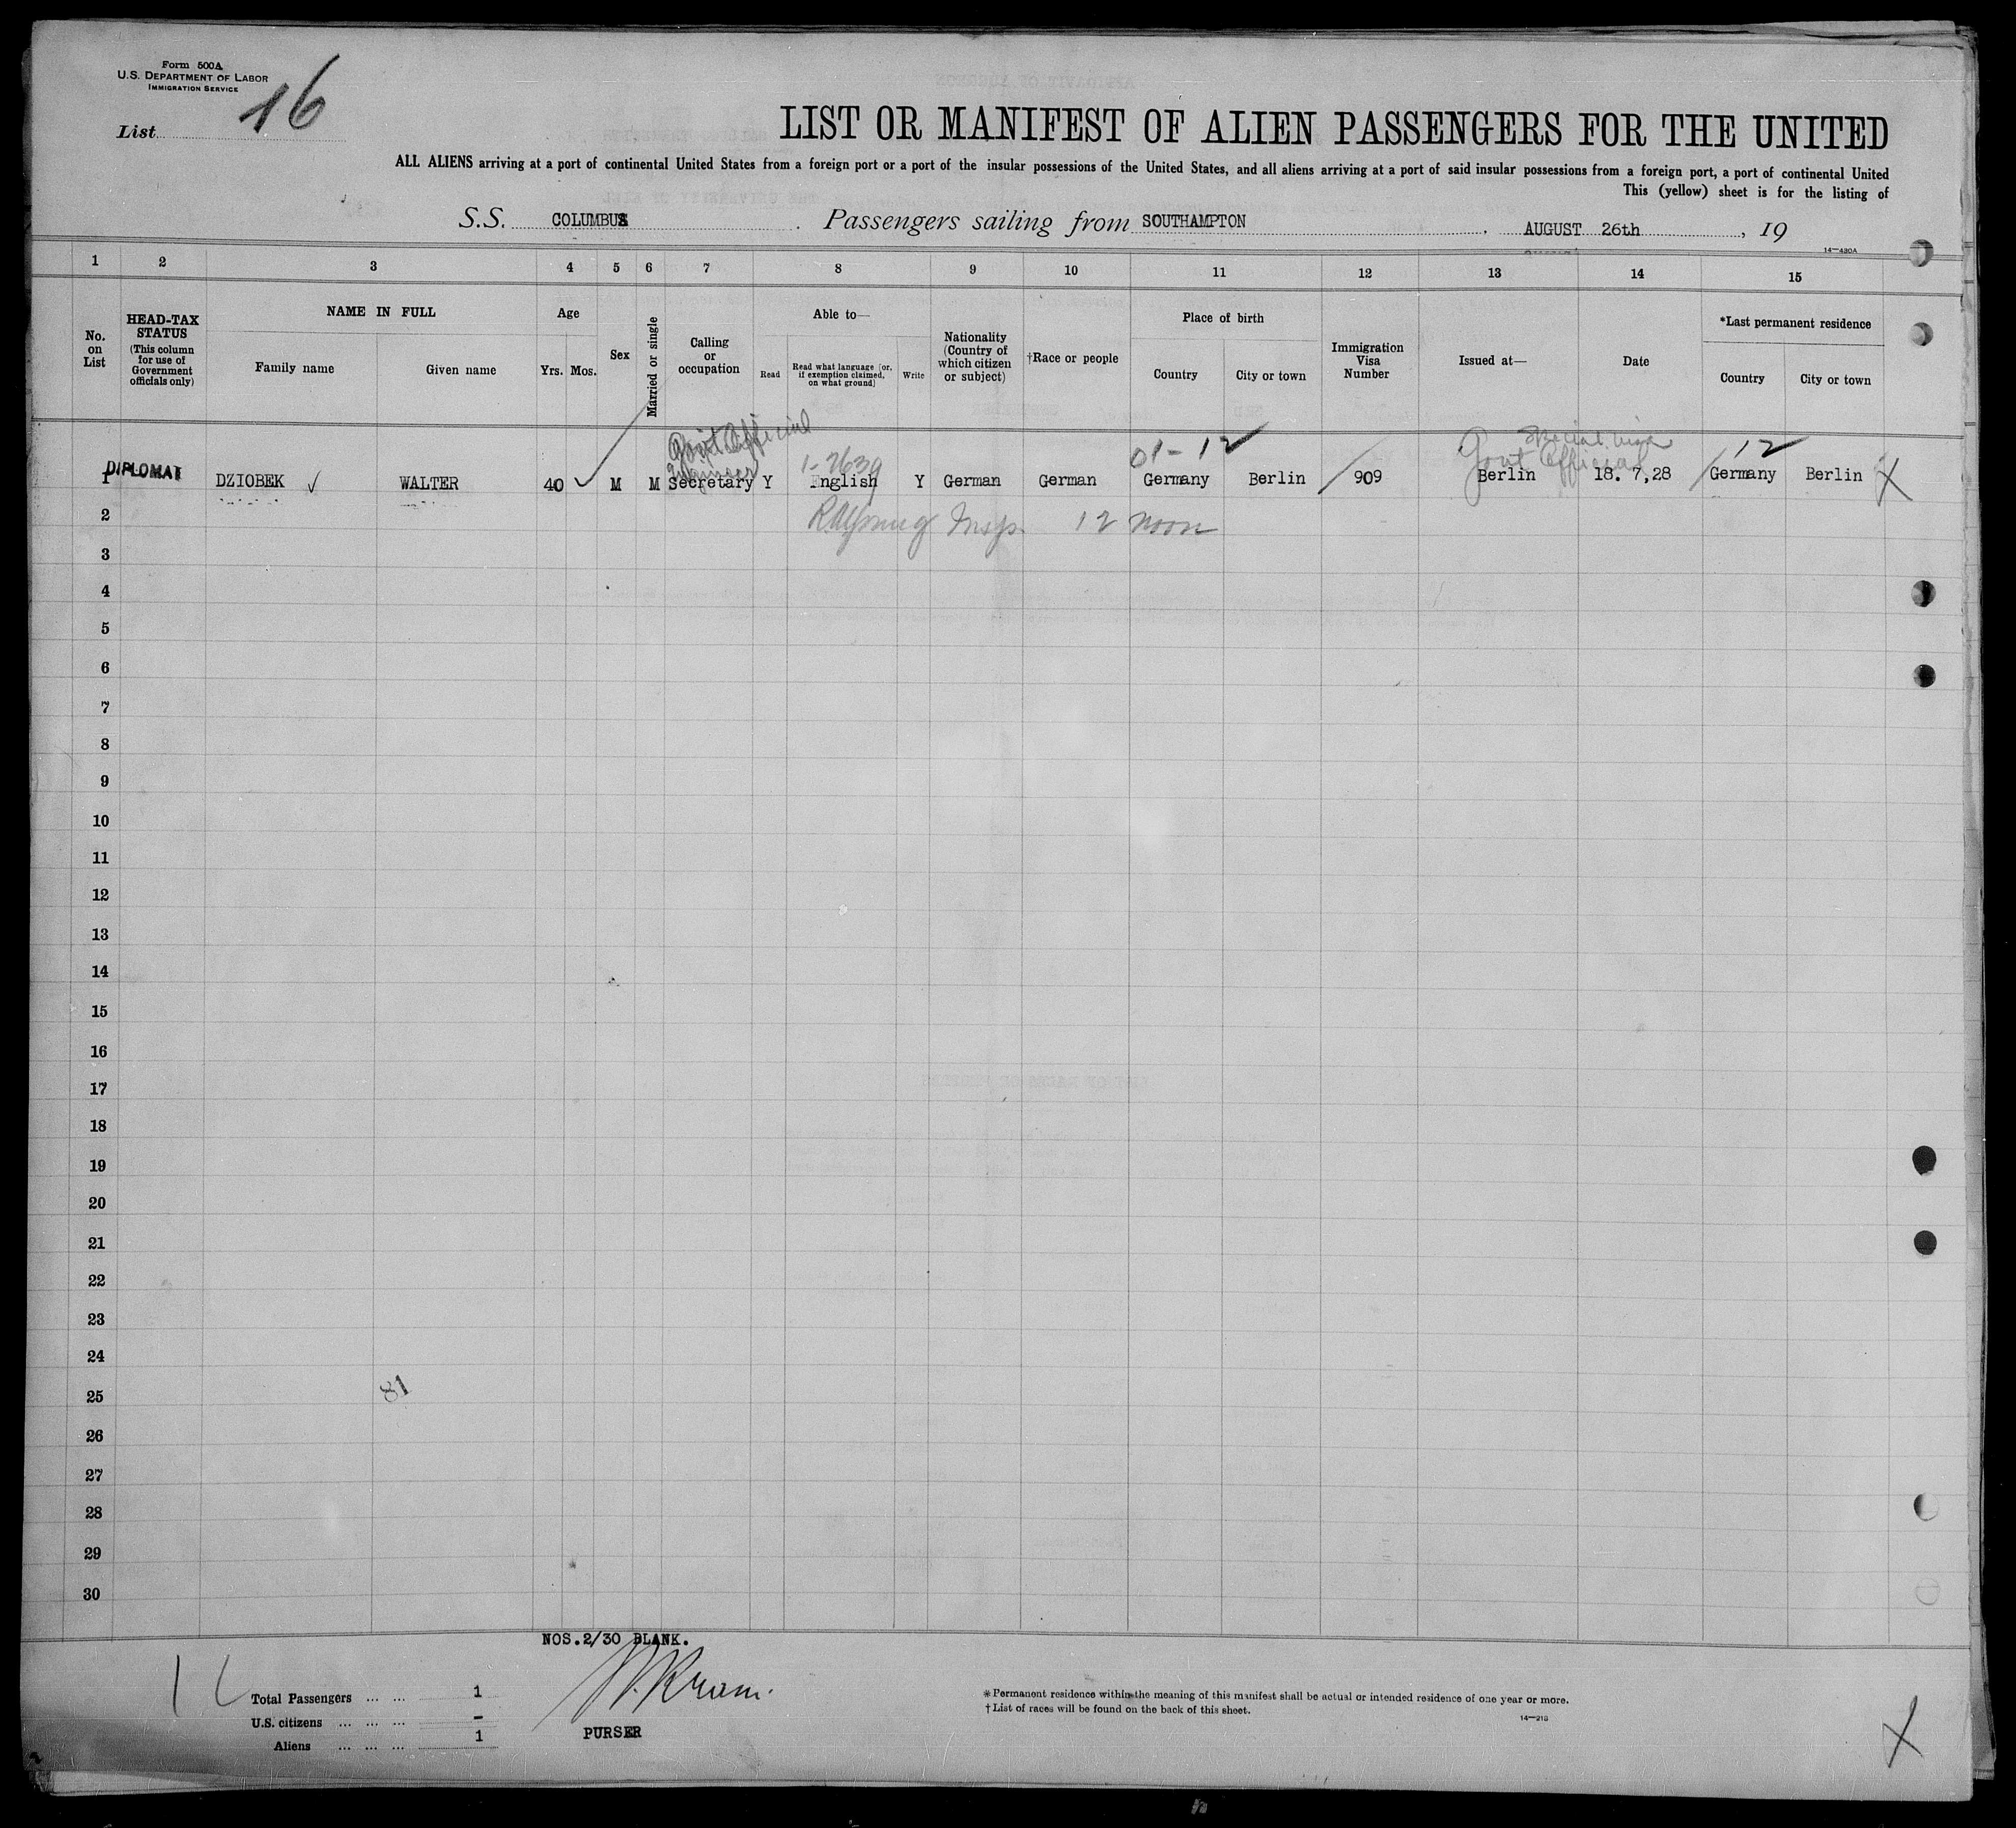 Form 500A
U.S. DEPARTMENT OF LABOR
IMMIGRATION SERVICE
List 16
LIST OR MANIFEST OF ALIEN PASSENGERS FOR THE UNITED
ALL ALIENS arriving at a port of continental United States from a foreign port or a port of the insular possessions of the United States, and all aliens arriving at a port of said insular possessions from a foreign port, a port of continental United
This (yellow) sheet is for the listing of
S.S. COLUMBUS Passengers sailing from SOUTHAMPTON, AUGUST 26th, 19
14—430A
1 2 3 4 5 6 7 8 9 10 11 12 13 14 15
No. on List
HEAD-TAX STATUS (This column for use of Government officials only)
NAME IN FULL
Family name Given name
Age
Yrs. Mos.
Sex
Married or single
Calling or occupation
Able to—
Read
Read what language (or, if exemption claimed, on what ground)
Write
Nationality (Country of which citizen or subject)
†Race or people
Place of birth
Country City or town
Immigration Visa Number
Issued at—
Date
*Last permanent residence
Country City or town
Govt Official
01-12 special visa 12
1-2639 Govt Official
1 DIPLOMAT DZIOBEK WALTER 40 M M Secretary Y English Y German German Germany Berlin 909 Berlin 18. 7,28 Germany Berlin X
2 Insp. 12 noon
3
4
5
6
7
8
9
10
11
12
13
14
15
16
17
18
19
20
21
22
23
24
25 81
26
27
28
29
30
NOS.2/30 BLANK.
Total Passengers ... ... 1
U.S. citizens ... ... ... -
Aliens ... ... ... 1
PURSER
*Permanent residence within the meaning of this manifest shall be actual or intended residence of one year or more.
†List of races will be found on the back of this sheet.
14—218
X